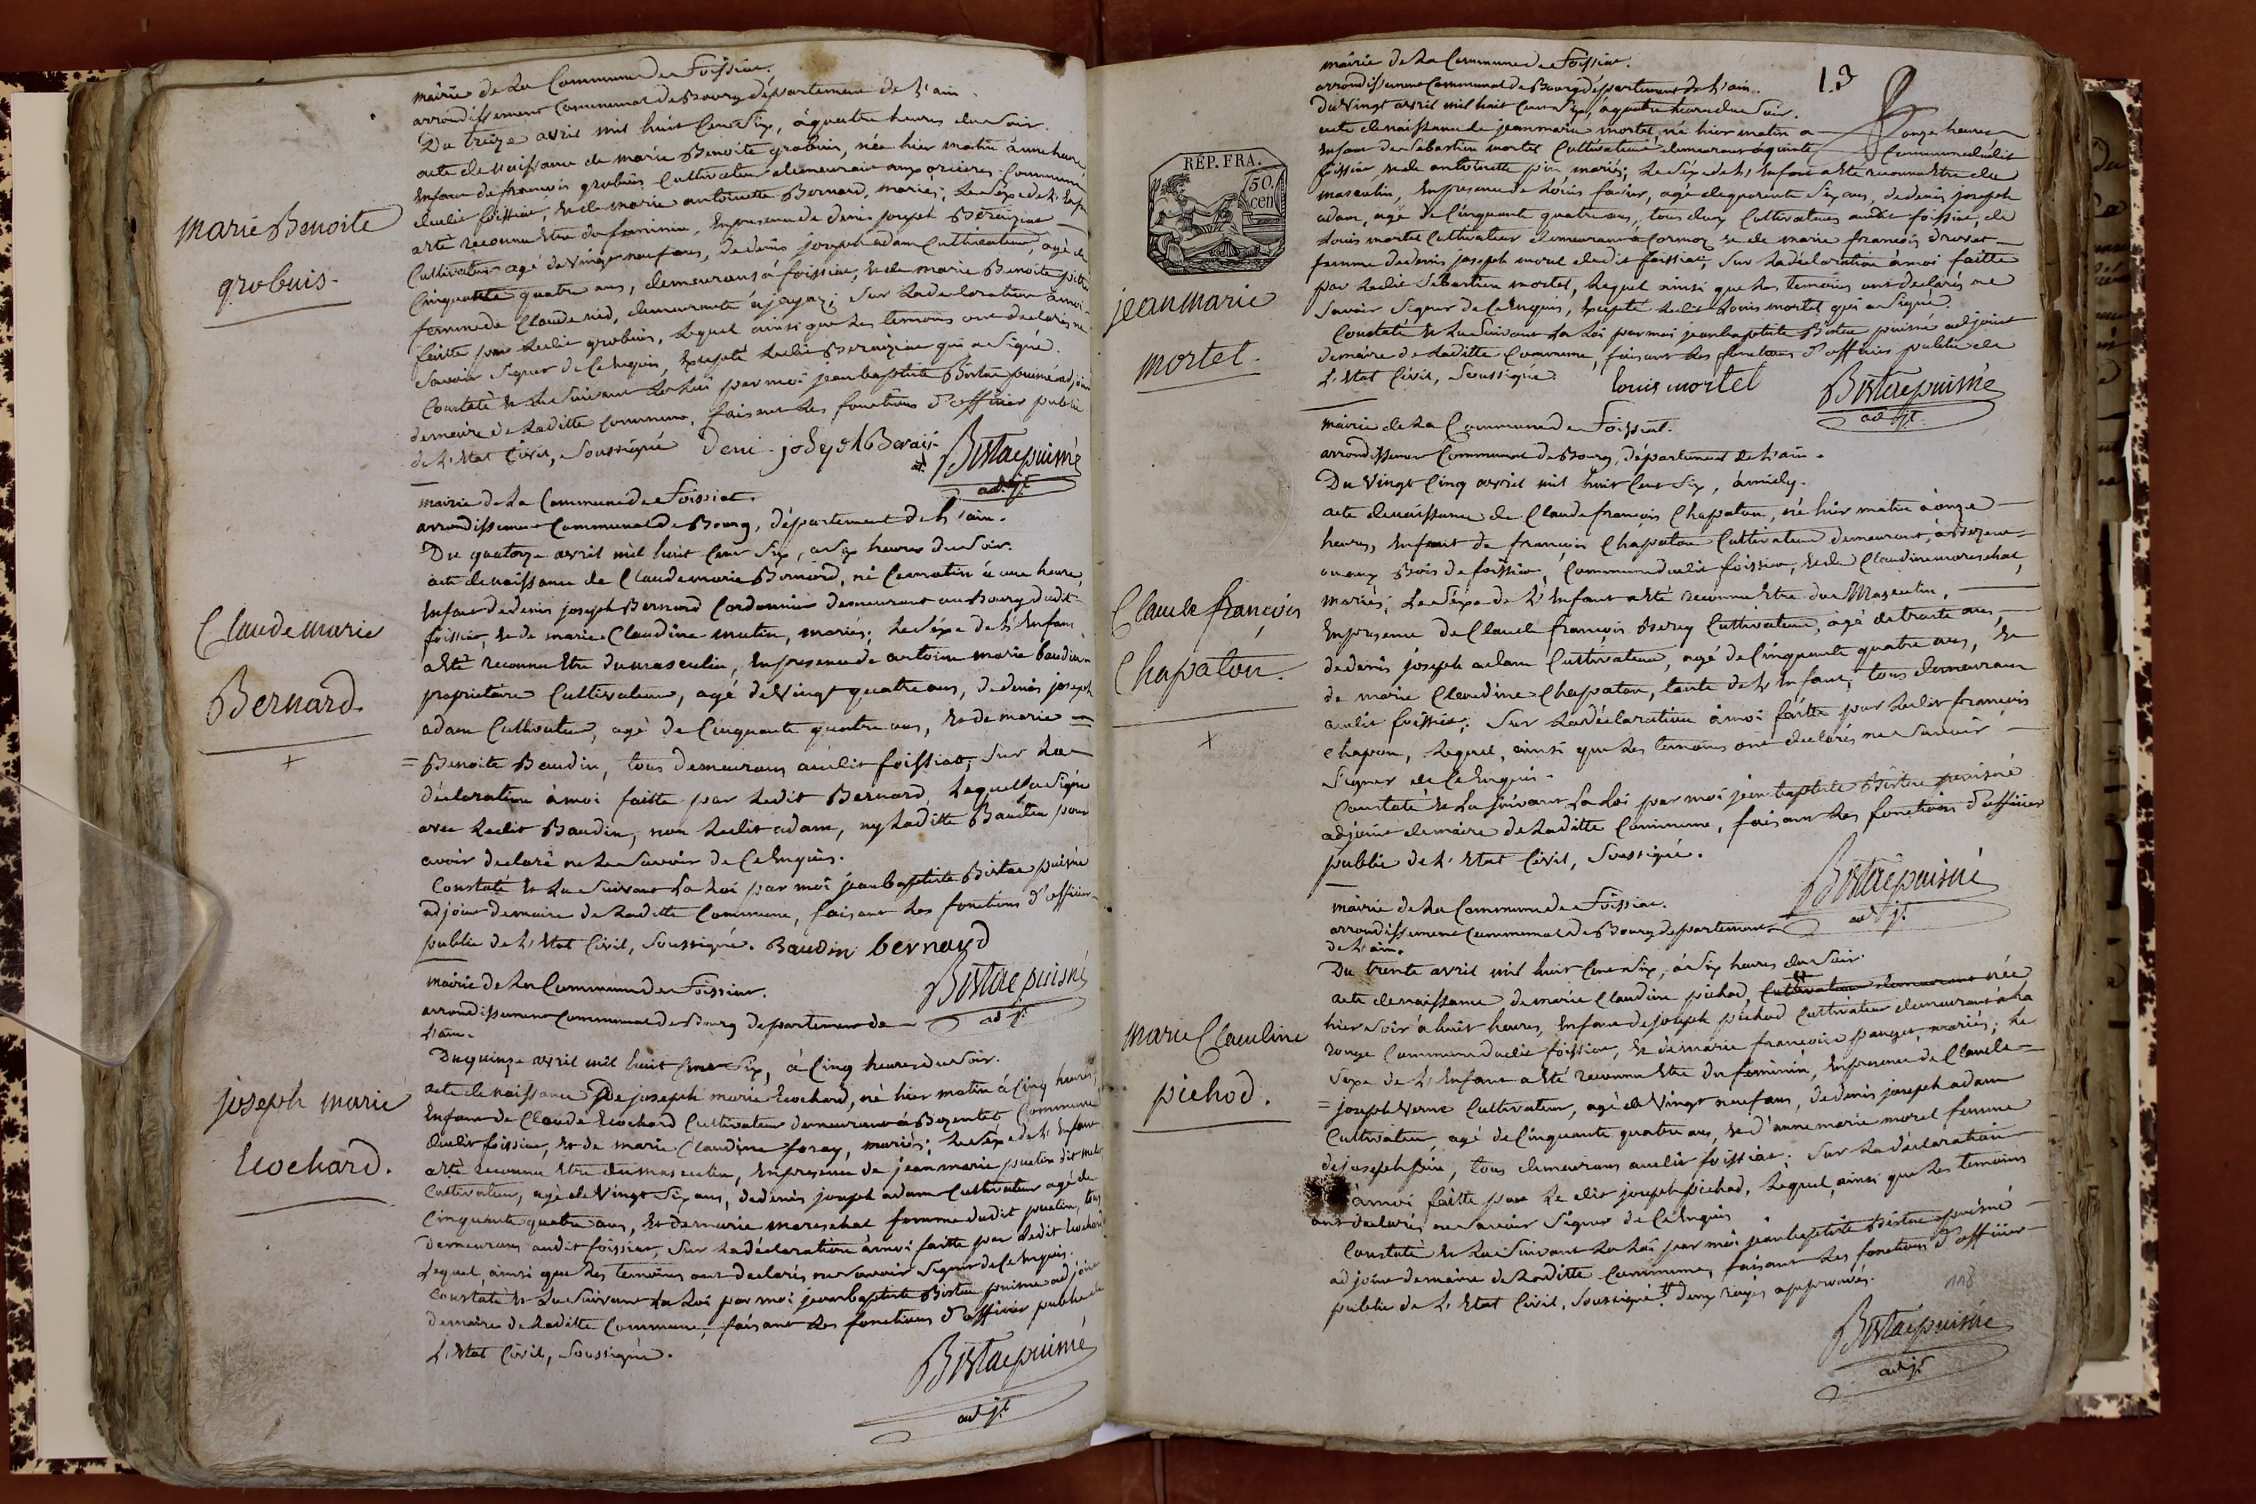 mairie de la Commune de Foissiat.
arrondissement Communal de Bourg département de l'ain.
Du treize avril mil huit Cent Six, à quatre heures du Soir.
acte de naissance de marie Benoite grobuis, née hier matin à une heure
Enfant de françois grobuis Cultivateur demeurant aux orières Commune
dudit foissiat, et de marie antoinette Bernard, mariés; Le Séxe de L'Enfan
a été reconnu Etre du feminin, En presence de denis joseph
Cultivateur agé de vingt neuf ans, de denis joseph adam Cultivateur, agé de
Cinquante quatre ans, demeurans à foissiat, et de marie Benoite
femme de Claude nid, demeurante à jayat; Sur La declaration à moi
faitte par Ledit grobuis, Lequel ainsi que Les temoins ont declarés ne
Savoir Signer de Ce Enquis, Excepté Ledit qui a Signé.
Constaté et Lu Suivant La Loi par moi jean baptiste Bistac puiné adjoint
de maire de Laditte Commune, faisant Les fonctions d'officier public
de L'Etat Civil, Soussigné
Bistac puiné
adjt
marie Benoite
grobuis.
mairie de La Commune de Foissiat.
arrondissement Communal de Bourg, département de L'ain.
Du quatorze avril mil huit Cent Six, a Six heures du Soir.
acte de naissance de Claude marie Bernard, né Ce matin à une heure,
Enfant de denis joseph Bernard Cordonnier demeurant au Bourg dudit
foissiat, et de marie Claudine mutin, mariés; Le Séxe de L'Enfant
a été reconnu Etre du masculin, En presence de antoine marie baudin
proprietaire Cultivateur, agé de Vingt quatre ans, de denis joseph
adam Cultivateur, agé de Cinquante quatre ans, et de marie
= Benoite Baudin, tous demeurans audit foissiat, Sur La
déclaration à moi faitte par Ledit Bernard, Lequel a Signé
avec Ledit Baudin, non Ledit adam, ny Laditte Baudin pour
avoir declaré ne Le Savoir de Ce Enquis.
Constaté et Lu Suivant La Loi par moi jean baptiste Bistac puiné
adjoint de maire de Laditte Commune, faisant Les fonctions d'officier
public de L'Etat Civil, Soussigné. Baudin bernard
Bistac puisné
adjt
Claude marie
Bernard.
+
mairie de La Commune de Foissiat.
arrondissement Communal de Bourg departement de
L'ain.
Du quinze avril mil huit Cent Six, à Cinq heures du Soir.
acte de naissance De joseph marie Ecochard, né hier matin à Cinq heures,
Enfant de Claude Ecochard Cultivateur demeurant à Bezentet Commune
dudit foissiat, et de marie Claudine foray, mariés; Le Séxe de L'Enfant
a été reconnu Etre du masculin, En presence de jean marie
Cultivateur, agé de Vingt Six ans, de denis joseph adam Cultivateur agé de
Cinquante quatre ans, et de marie mareschal femme dudit tous
demeurans audit foissiat, Sur La déclaration à moi faitte par Ledit Ecochard
Lequel, ainsi que Les temoins ont declarés ne Savoir Signer de Ce Enquis.
Constaté et Lu Suivant La Loi par moi jean baptiste Bistac puiné adjoint
de maire de Laditte Commune, faisant Les fonctions d'officier public de
L'Etat Civil, Soussigné.
Bistac puiné
adjt
joseph marie
Ecochard.
13
mairie de La Commune de Foissiat.
arrondissement Communal de Bourg département de L'ain.
Du Vingt avril mil huit Cent Six, à quatre heures du Soir.
acte de naissance de jean marie mortel, né hier matin a onze heures
Enfant de Sébastien mortel Cultivateur demeurant Commune dudit
foissiat, et de antoinette mariés; Le Séxe de L'Enfant a été reconnu Etre du
masculin, En presence de Louis agé de quarente Six ans, de denis joseph
adam, agé de Cinquante quatre ans, tous deux Cultivateurs audit foissiat, de
Louis mortel Cultivateur demeurant à Cormoz et de marie françois
femme de denis joseph morel dudit foissiat, Sur La déclaration à moi faitte
par Ledit Sébastien mortel, Lequel ainsi que Les temoins ont declarés ne
Savoir Signer de Ce Enquis, Excepté Ledit Louis mortel qui a Signé.
Constaté et Lu Suivant La Loi par moi jean baptiste Bistac puiné adjoint
de maire de Laditte Commune, faisant Les fonctions d'officier public de
L'Etat Civil, Soussigné. louis mortel
Bistac puiné
adjt
RÉP. FRA.
50.
cen
jean marie
mortel.
mairie de La Commune de Foissiat.
arrondissement Communal de Bourg, département de L'ain.
Du Vingt Cinq avril mil huit Cent Six, à midy.
acte de naissance de Claude françois Chapaton, né hier matin à onze
heures, Enfant de françois Chapaton Cultivateur demeurant
aux Bois de foissiat, Commune dudit foissiat, et de Claudine mareschal,
mariés; Le Séxe de L'Enfant a été reconnu Etre du Masculin,
En presence de Claude françois Cultivateur, agé de trante ans,
de denis joseph adam Cultivateur, agé de Cinquante quatre ans, et
de marie Claudine Chapaton, tante de L'Enfant, tous demeurans
audit foissiat; Sur La déclaration à moi faitte par Ledit françois
Chapon, Lequel, ainsi que Les temoins ont declarés ne Savoir
Signer de Ce Enquis.
Constaté et Lu Suivant La Loi par moi jean baptiste Bistac puisné
adjoint de maire de Laditte Commune, faisant Les fonctions d'officier
public de L'Etat Civil, Soussigné.
Bistac puisné
adjt
Claude françois
Chapaton.
+
mairie de La Commune de Foissiat.
arrondissement Communal de Bourg departement
de L'ain.
Du trente avril mil huit Cent Six, à Six heures du Soir.
acte de naissance de marie Claudine pichod, Cultivateur demeurant née
hier Soir à huit heures, Enfant de joseph pichod Cultivateur demeurant à La
rouge Commune dudit foissiat, et de marie françoise panget, mariés; Le
Sexe de L'Enfant a été reconnu Etre du feminin, En presence de Claude
= joseph Verne Cultivateur, agé de Vingt neuf ans, de denis joseph adam
Cultivateur, agé de Cinquante quatre ans, et d'anne marie morel femme
de joseph tous demeurans audit foissiat; Sur La déclaration
à moi faitte par Le dit joseph pichod, Lequel, ainsi que Les temoins
ont declarés ne Savoir Signer de Ce Enquis
Constaté et Lu Suivant La Loi par moi jean baptiste Bistac puisné
adjoint de maire de Laditte Commune, faisant Les fonctions d'officier
public de L'Etat Civil, Soussigné. deux rayés approuvés.
118
Bistac puisné
adjt
marie Claudine
pichod.